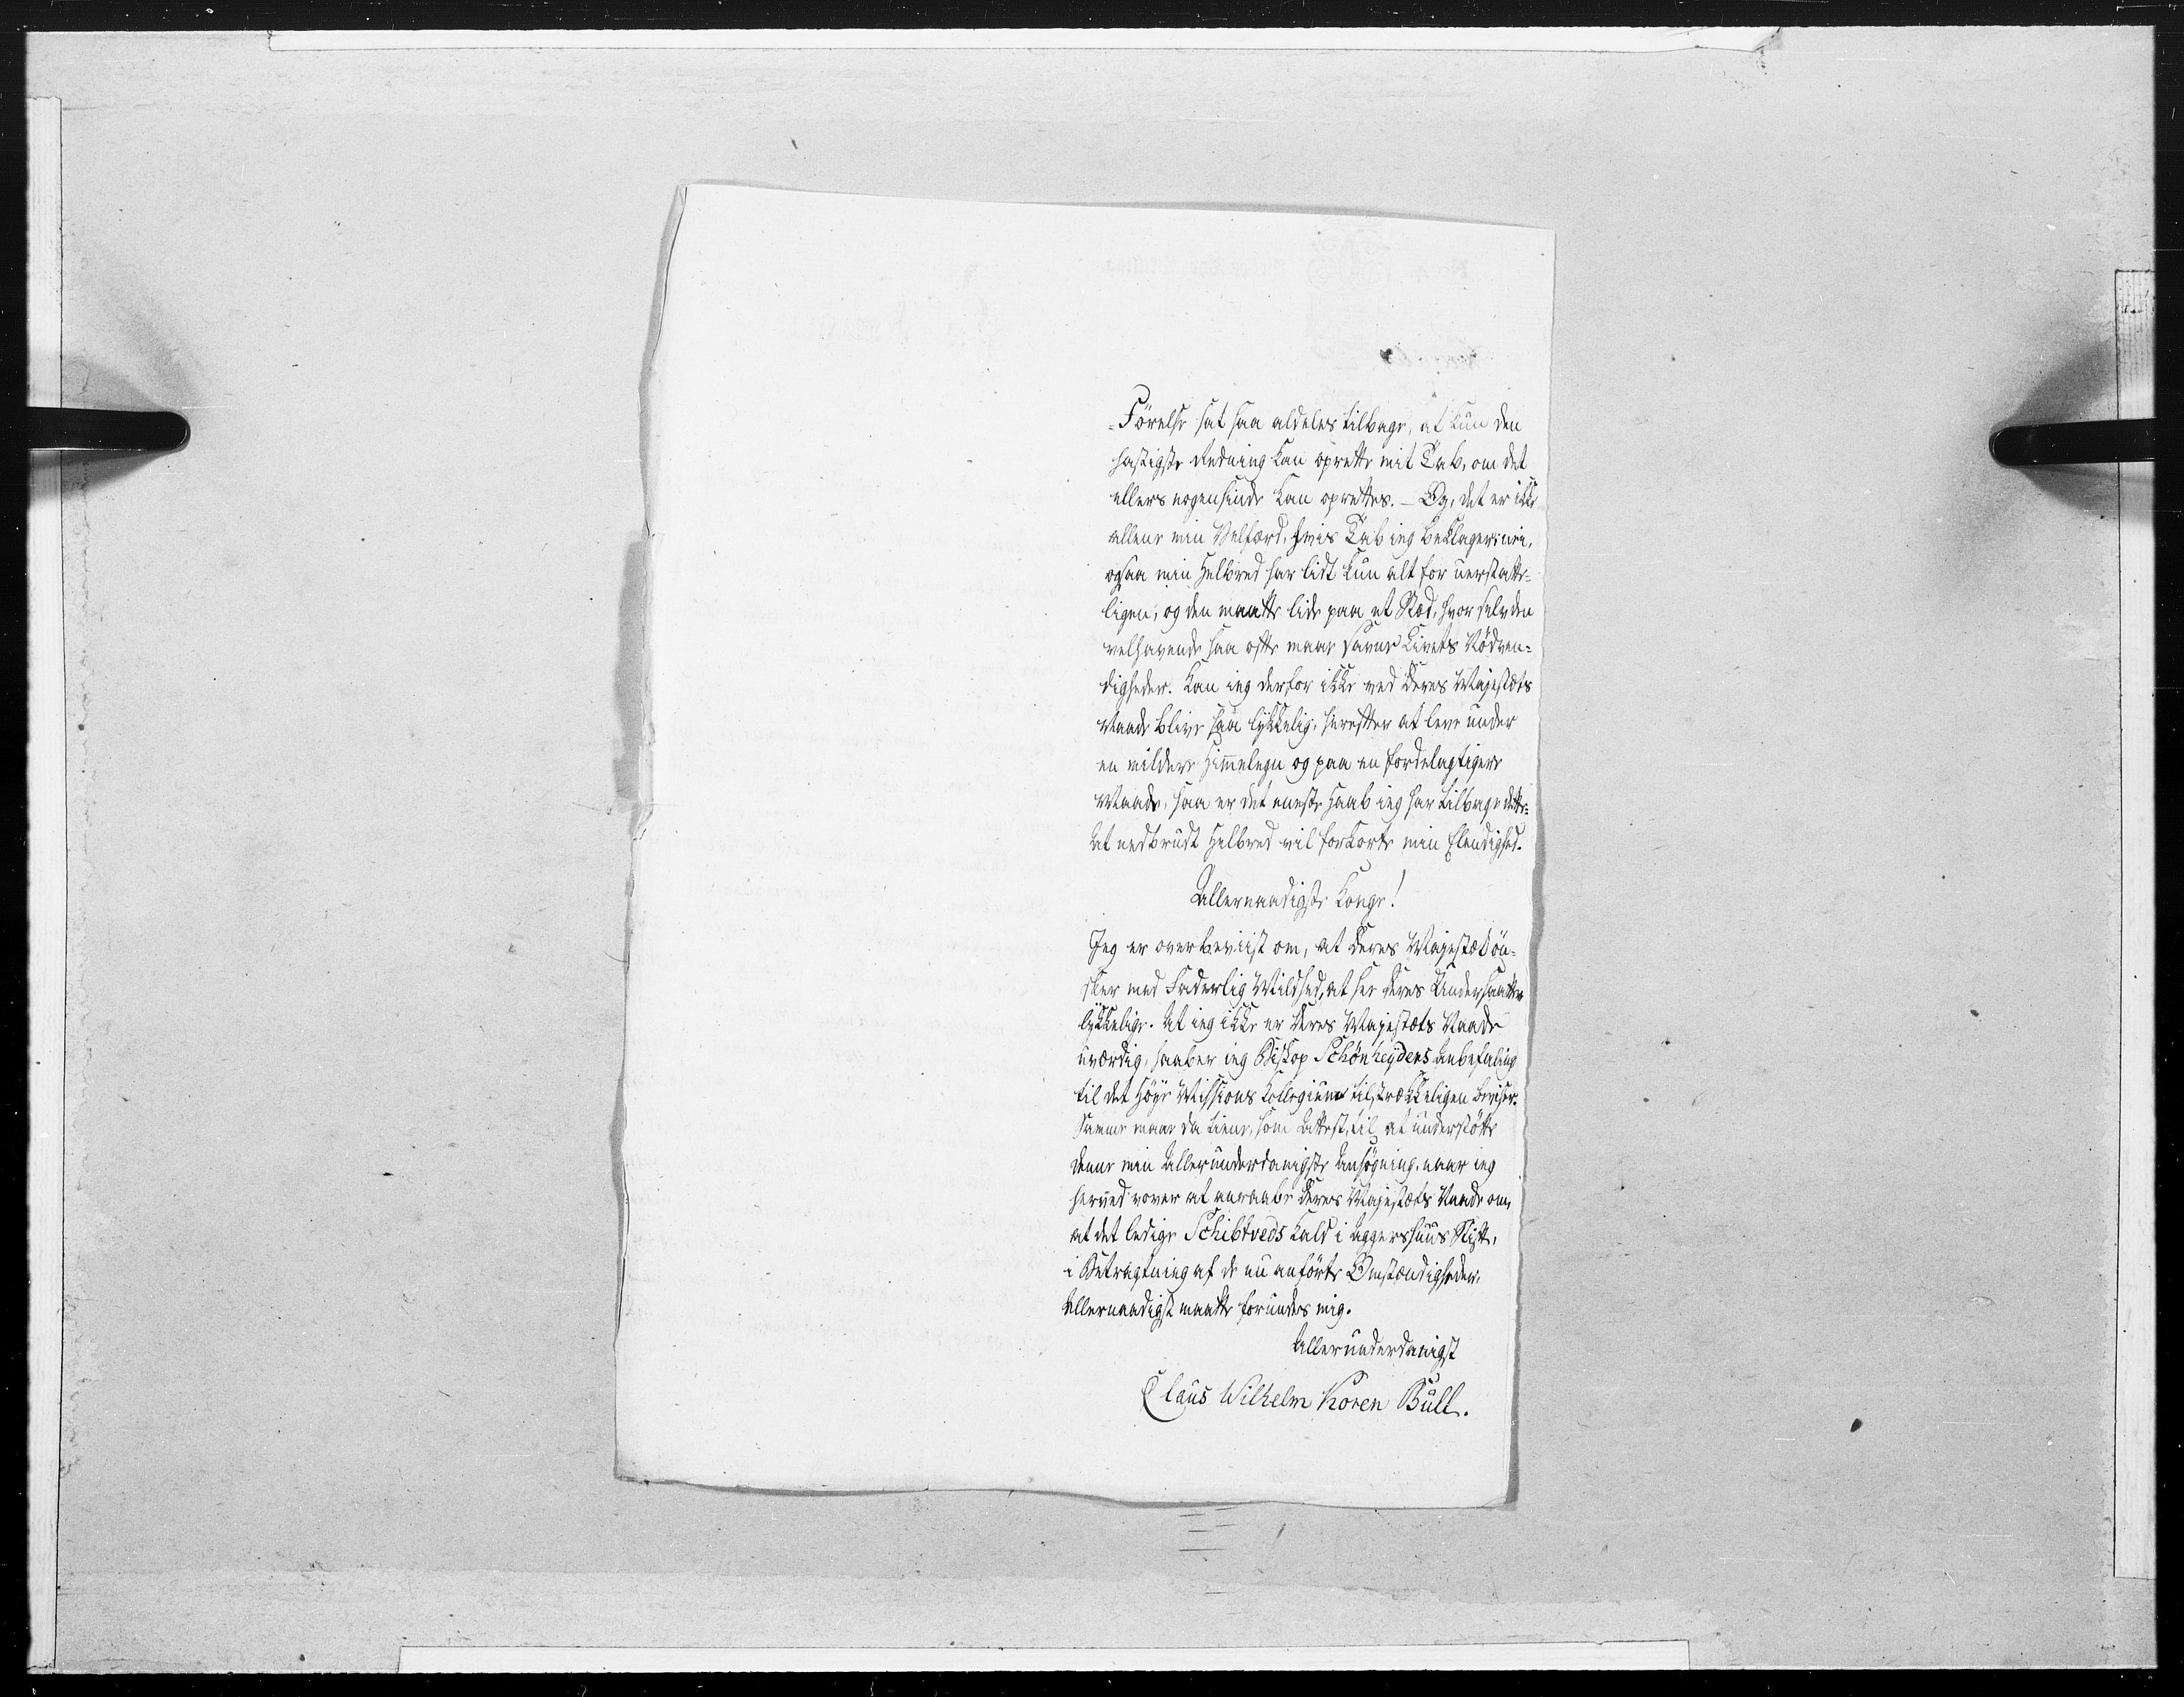 =Förelse sat saa aldeles tilbage, at kun den
hastigste Redning kan oprette mit Tab, om det
ellers nogensinde kan oprettes. – Og, det er ikke
allene min Velfærd, hvis Tab jeg beklager: nei,
ogsaa min Helbred har lidt kun alt for uerstatte=
ligen, og den maatte lide paa et Stæd, hvor selv den
velhavende saa ofte maae savne Livets Nödven=
digheder. Kan jeg derfor ikke ved Deres Majestæts
Naade blive saa lykkelig, herefter at leve under
en mildere Himmelegn og paa en fordelagtigere
Maade, saa er det eneste Haab jeg har tilbage dette:
At nedbrudt Helbred vil forkorte min Elendighed.
Allernaadigste Konge!
Jeg er overbeviist om, at Deres Majestæt ön=
sker med Faderlig Mildhed, at see Deres Undersaatter
lykkelige. At jeg ikke er Deres Majestæts Naade
uværdig, haaber jeg Biskop Schönheyders Anbefaling
til det Höye Missions Kollegium tilstrækkeligen beviser.
Samme maae da tiene, som Attest, til at understötte
denne min Allerunderdanigste Ansögning, naar jeg
herved vover at anraabe Deres Majestæts Naade om,
at det ledige Schibtveds Kald i Aggershuus Stift,
i Betragtning af de nu anförte Omstændigheder,
Allernaadigst maatte forundes mig.
Allerunderdanigst
Claus Wilhelm Koren Bull.